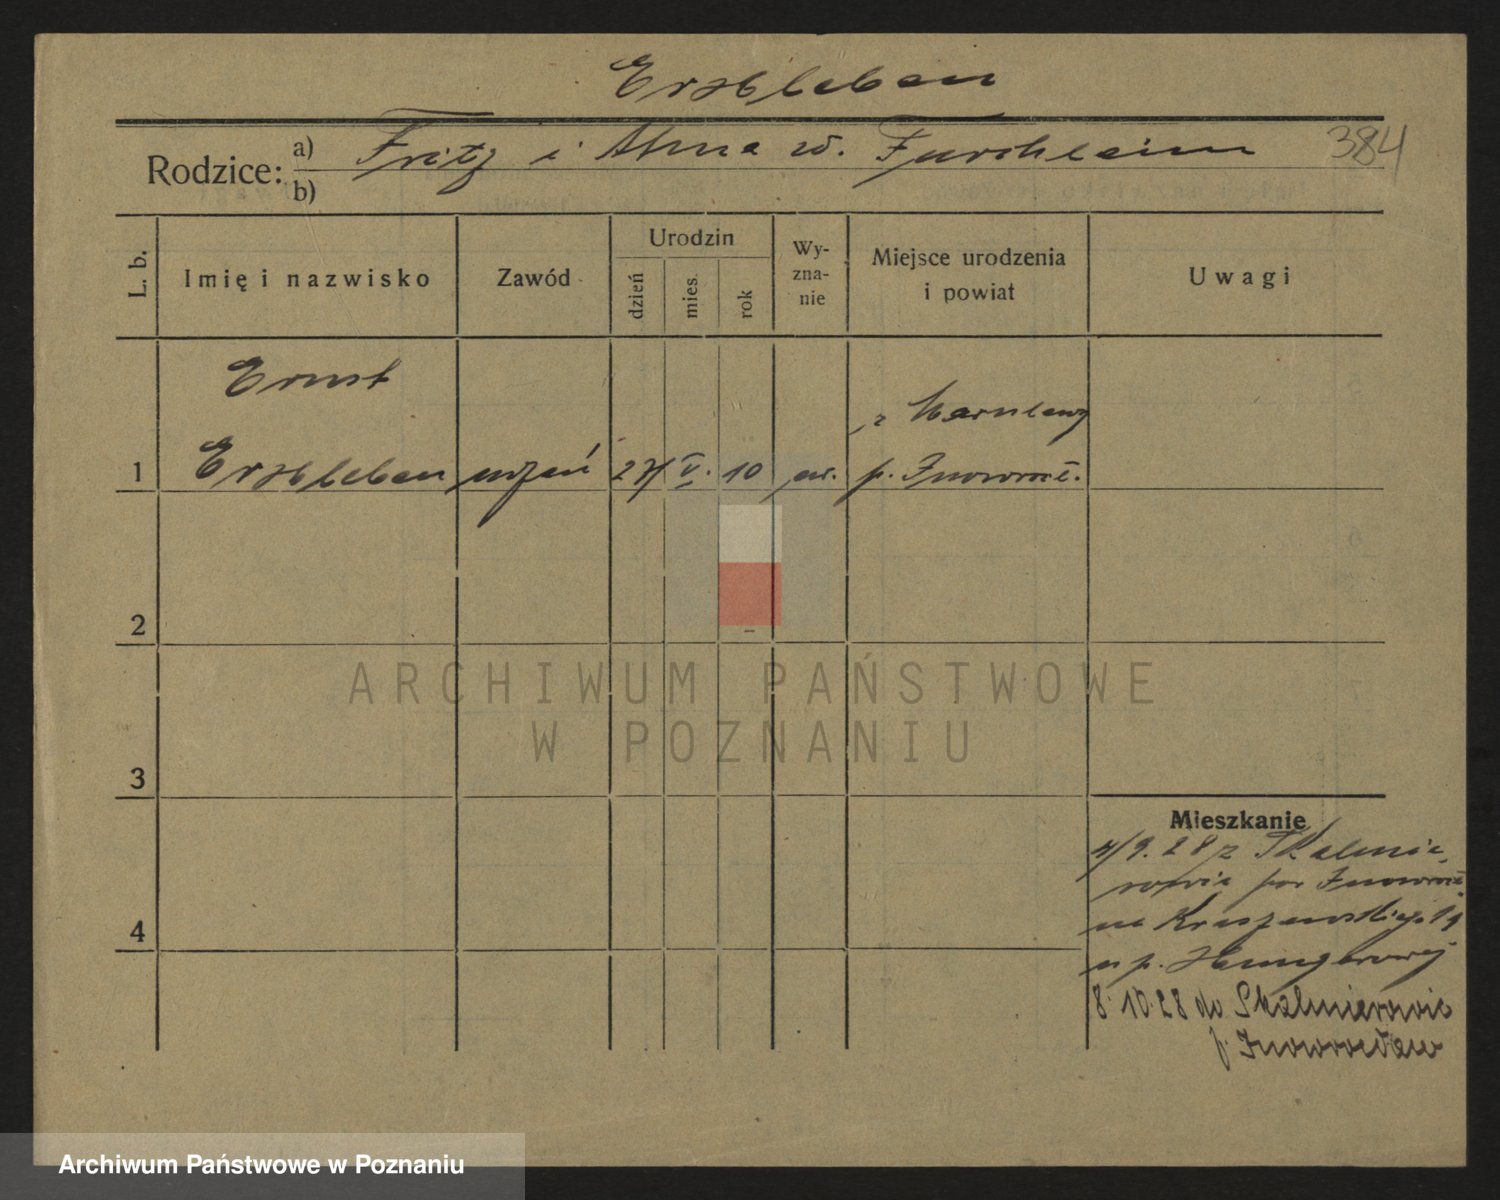 Erxleben
384
Rodzice: a) Fritz i Anna w. Furchheim
b)
L. b. Imię i nazwisko Zawód Urodzin dzień mies. rok Wy-zna-nie Miejsce urodzenia i powiat Uwagi
Ernst
1 Erxleben uczeń 27 V. 10 ew. p. Inowrocł.
2
3
4
Mieszkanie
4/9. 28 z Skalmie
rowic pow Inowrocł
na Kraszewskiego
u p.
8.10.28 do Skalmierowic
p. Inowrocław
ARCHIWUM PAŃSTWOWE
W POZNANIU
Archiwum Państwowe w Poznaniu